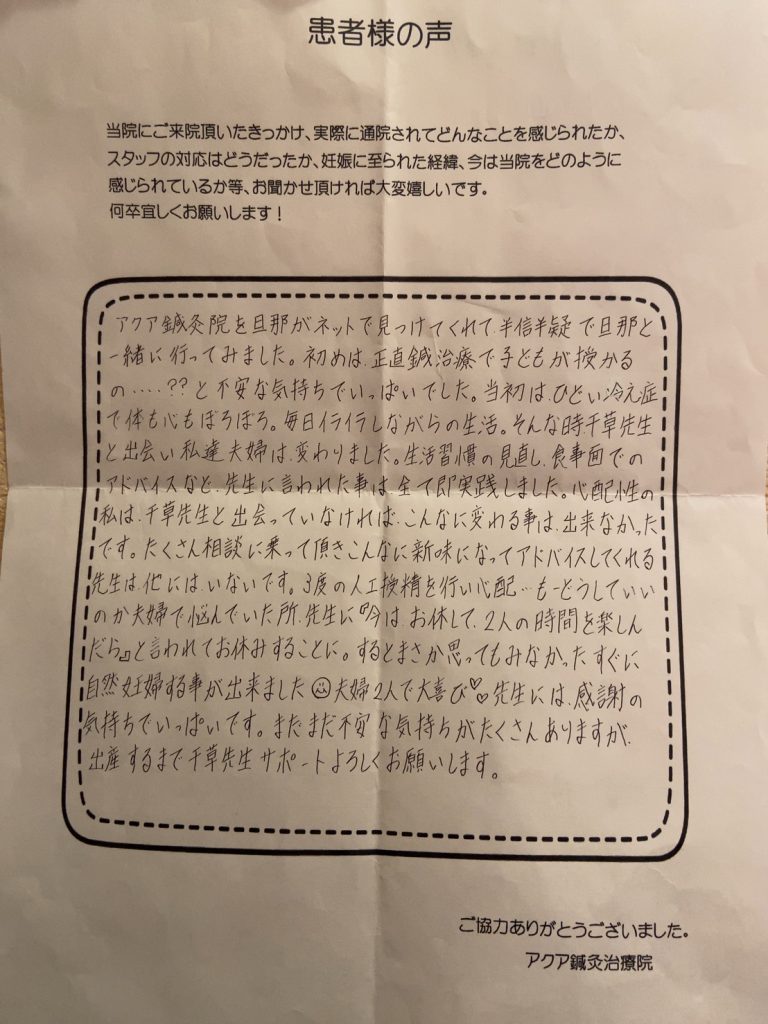 患者様の声
当院にご来院頂いたきっかけ、実際に通院されてどんなことを感じられたか、
スタッフの対応はどうだったか、妊娠に至られた経緯、今は当院をどのように
感じられているか等、お聞かせ頂ければ大変嬉しいです。
何卒宜しくお願いします！
アクア鍼灸院を旦那がネットで見つけてくれて、半信半疑で旦那と
一緒に行ってみました。初めは、正直鍼治療で子どもが授かる
の‥‥??と不安な気持ちでいっぱいでした。当初は、ひどい冷え症
で体も心もぼろぼろ。毎日イライラしながらの生活。そんな時、千草先生
と出会い私達夫婦は、変わりました。生活習慣の見直し、食事面での
アドバイスなど、先生に言われた事は、全て即実践しました。心配性の
私は、千草先生と出会っていなければ、こんなに変わる事は、出来なかった
です。たくさん相談に乗って頂きこんなに親味になってアドバイスしてくれる
先生は、他には、いないです。3度の人工授精を行い心配…もーどうしていい
のか夫婦で悩んでいた所、先生に『今は、お休して、2人の時間を楽しん
だら』と言われてお休みすることに。するとまさか思ってもみなかったすぐに
自然妊婦する事が出来ました☺夫婦2人で大喜び♡♡先生には、感謝の
気持ちでいっぱいです。まだまだ不安な気持ちがたくさんありますが、
出産するまで千草先生サポートよろしくお願いします。
ご協力ありがとうございました。
アクア鍼灸治療院